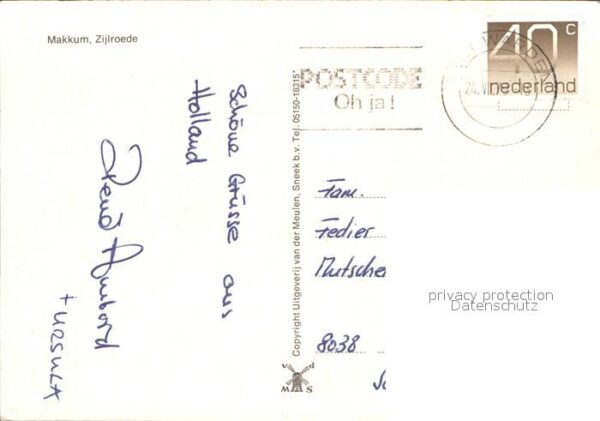 Makkum, Zijlroede
40 c
nederland
POSTCODE
Oh ja!
Schöne Grüsse aus
Holland
+ URSULA
Copyright Uitgeverij van der Meulen, Sneek b.v. Tel. 05150-18315*
Fam.
Fedier
Mutsche
8038
privacy protection
Datenschutz